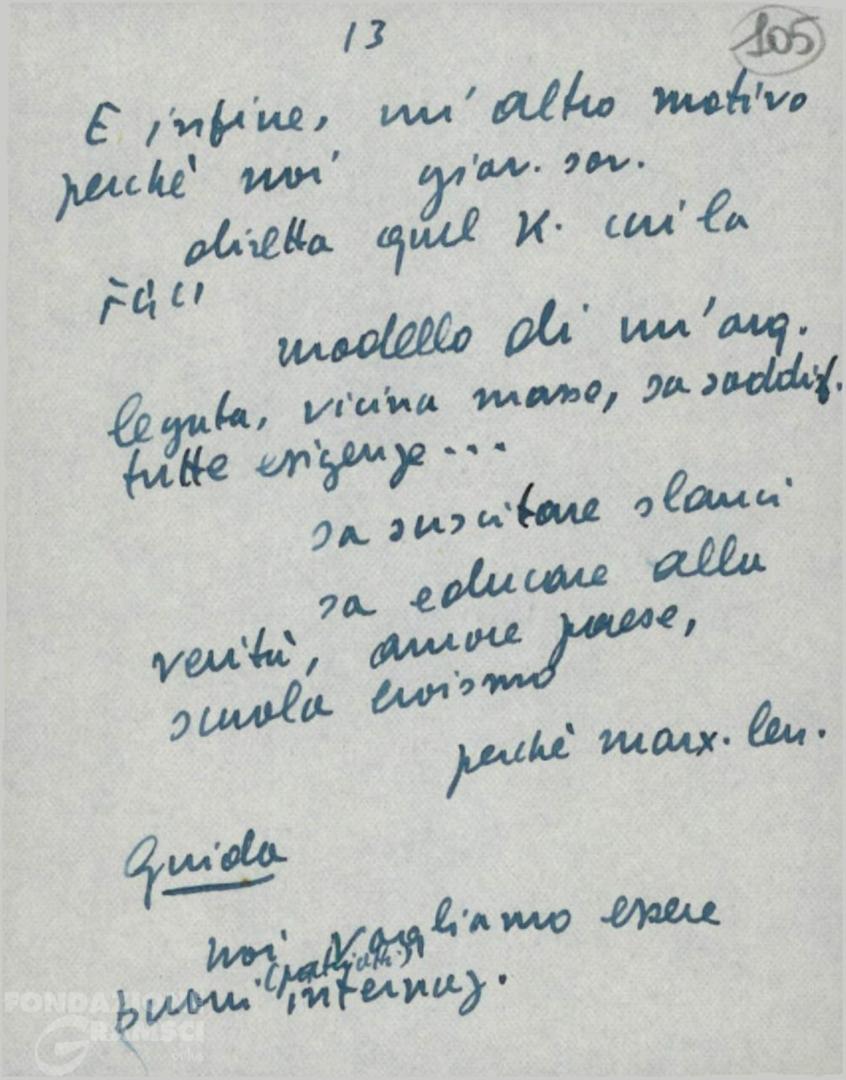 13
105
E infine, un' altro motivo
perchè noi giov. sov.
diretta quel K. cui la
FGCI
modello di un'org.
legata, vicina masse, sa soddisf.
tutte esigenze...
sa suscitare slanci
sa educare alla
verità, amore paese,
scuola eroismo
perchè marx. len.
Guida
noi vogliamo essere
buoni (patriotti) internaz.
FONDAZIONE
GRAMSCI